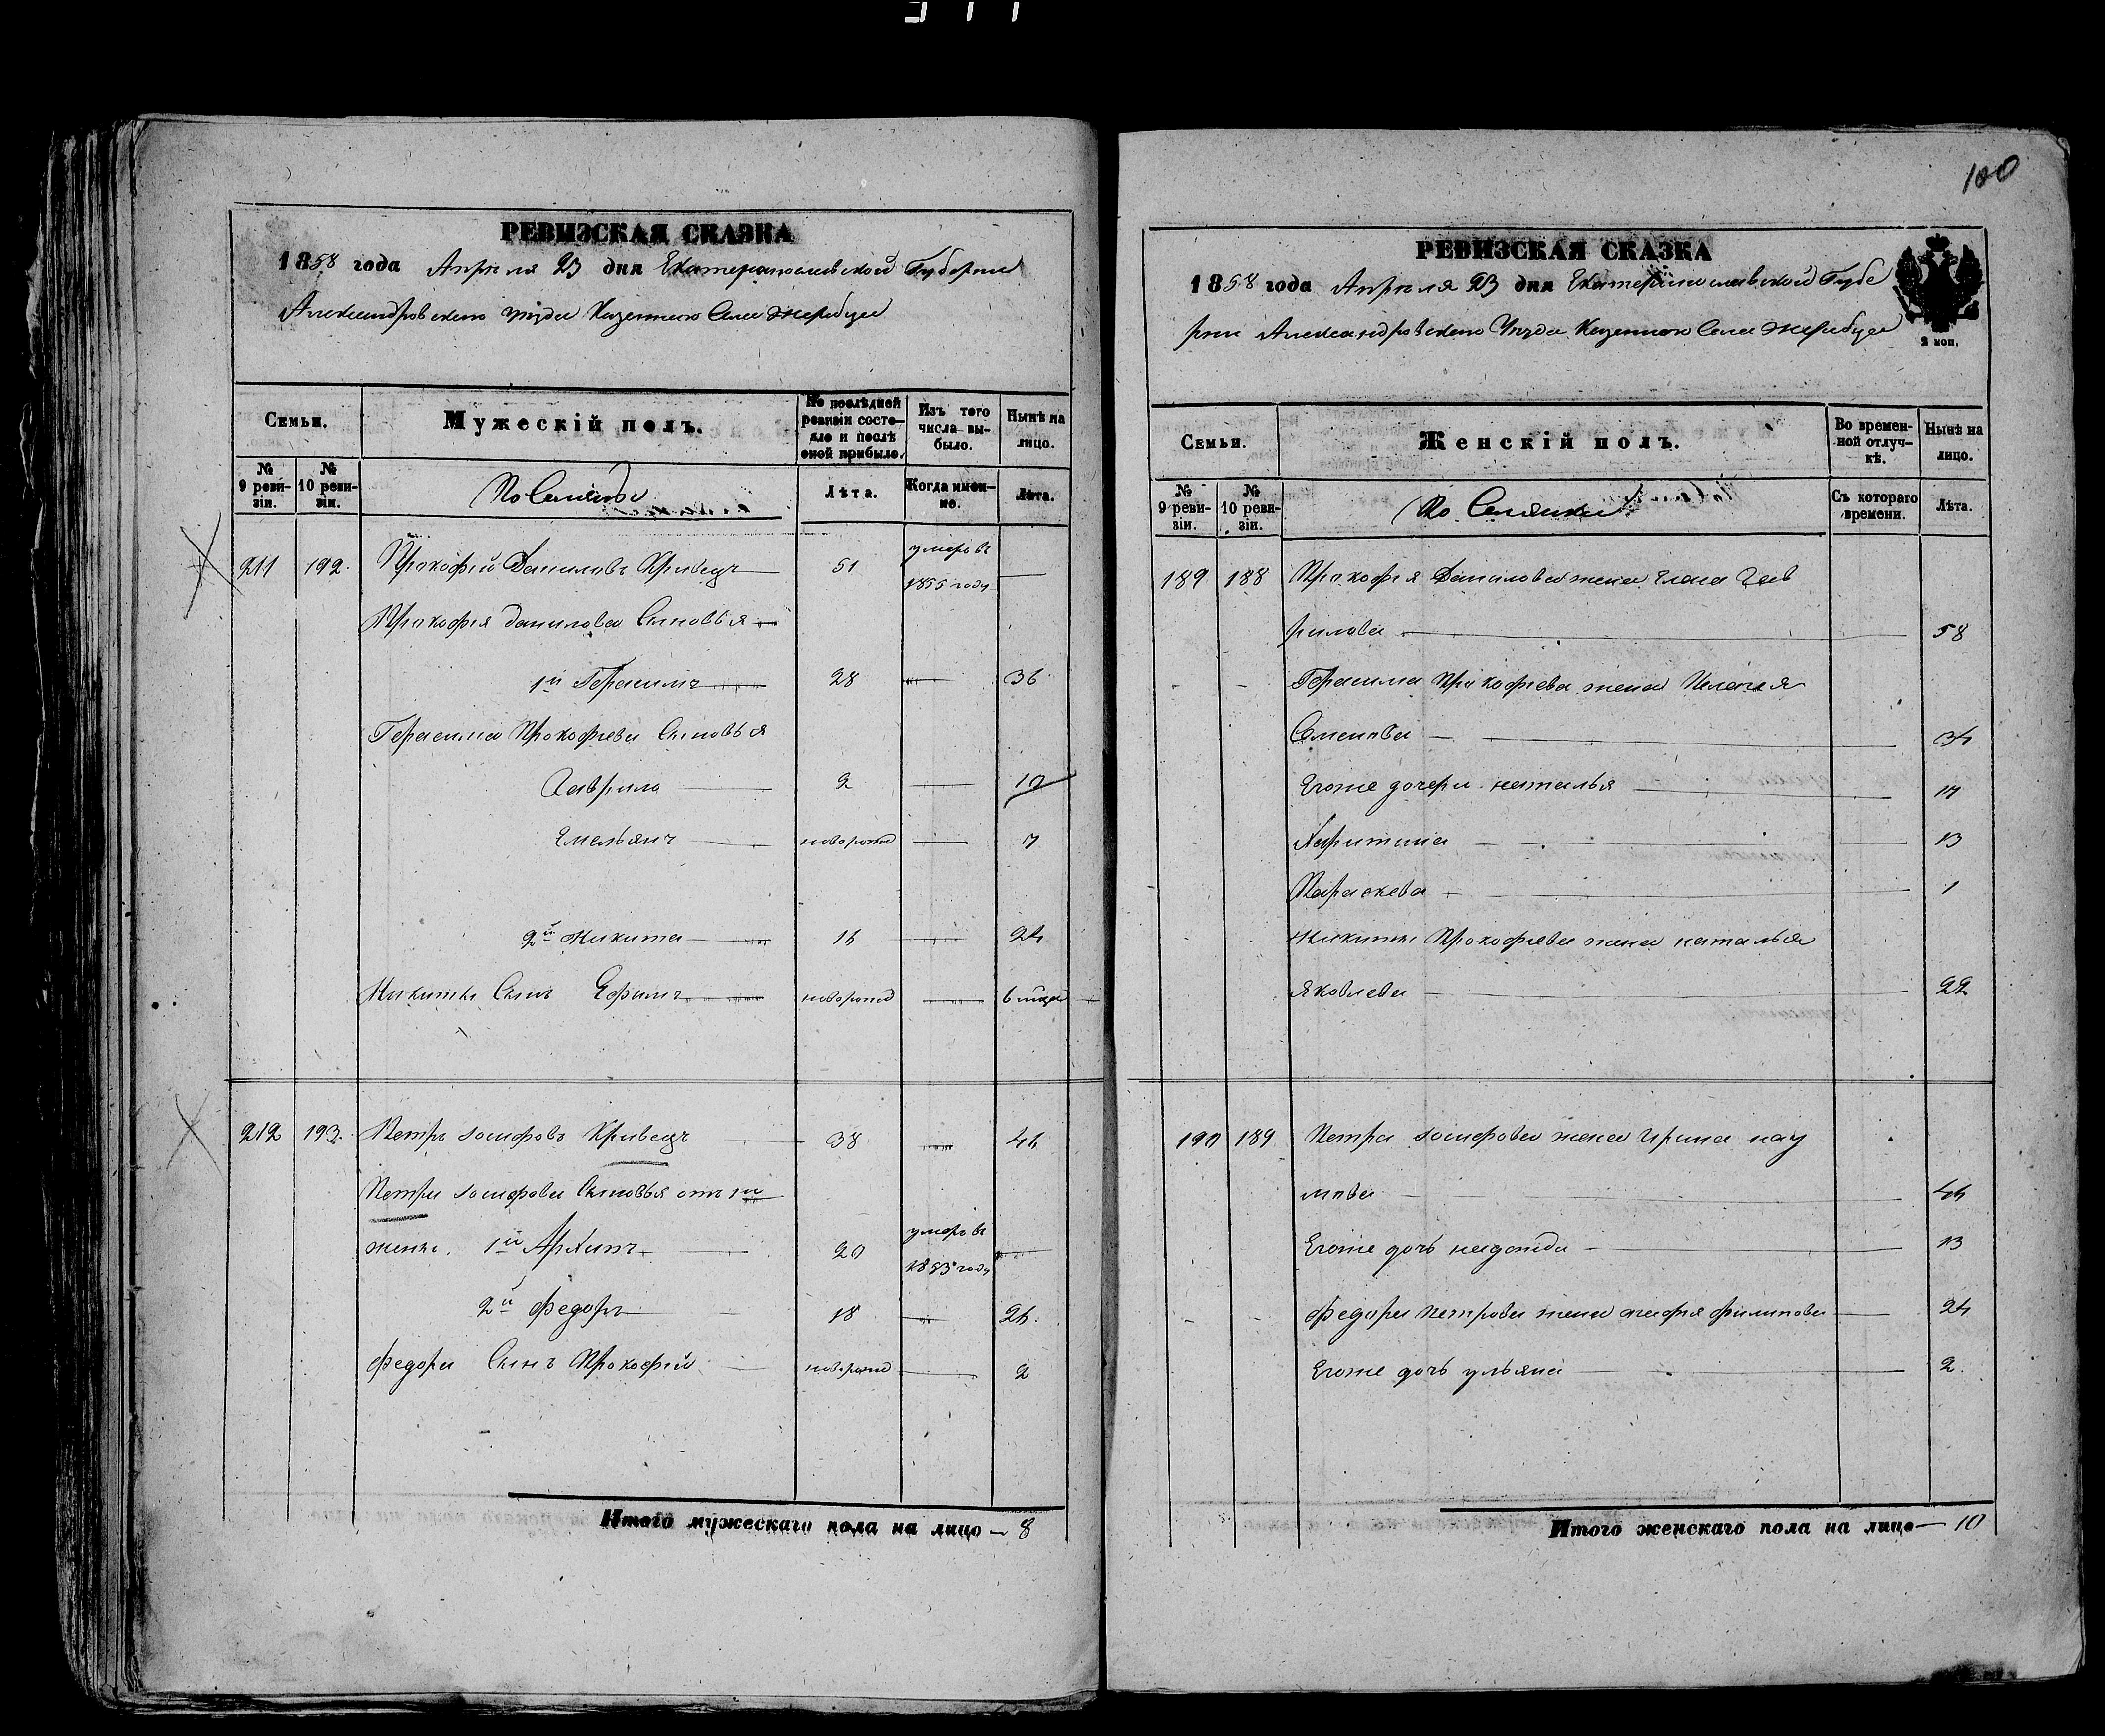 100
РЕВИЗСКАЯ СКАЗКА
1858 года Апреля 23 дня Екатеринославской Губернии
Александровского уезда Казенного Села Жеребца
Семьи.
Мужескій полъ.
По послѣдней ревизіи состояло и послѣ оной прибыло.
Изъ того числа выбыло.
Нынѣ на лицо.
№ 9 ревизіи.
№ 10 ревизіи.
Лѣта.
Когда именно.
Лѣта.
211 192. Прокофий Данилов Кривецъ 51 умеръ въ 1855 году
Прокофия Данилова Сыновья
1й Герасимъ 28 36
Герасима Прокофьева Сыновья
Гаврило 2 10
Емельянъ новорожд 7
2й Никита 16 24
Никиты Сынъ Ефимъ новорожд 6 мцов
212 193. Петръ Иосифовъ Кривецъ 38 46
Петра Иосифова Сыновья отъ 1й
жены. 1й Архипъ 20 умеръ въ 1853 году
2й Федоръ 18 26.
Федора Сынъ Прокофий новорожд 2
Итого мужескаго пола на лицо — 8
РЕВИЗСКАЯ СКАЗКА
1858 года Апреля 23 дня Екатеринославской Губе
рнии Александровского Уезда Казенного Села Жеребца
2 коп.
Семьи.
Женскій полъ.
Во временной отлучкѣ.
Нынѣ на лицо.
№ 9 ревизіи.
№ 10 ревизіи.
Съ котораго времени.
Лѣта.
189 188 Прокофия Данилова жена Елена Гав
рилова 58
Герасима Прокофьева жена Пелагея
Семенова 34
Егоже дочери Наталья 17
Харитина 13
Параскева 1
Никиты Прокофьева жена Наталья
Яковлева 22
190 189 Петра Иосифова жена Ирина Нау
мова 46
Егоже дочь Надежда 13
Федора Петрова жена Агафия Филипова 24
Егоже дочь Ульяна 2.
Итого женскаго пола на лицо — 10